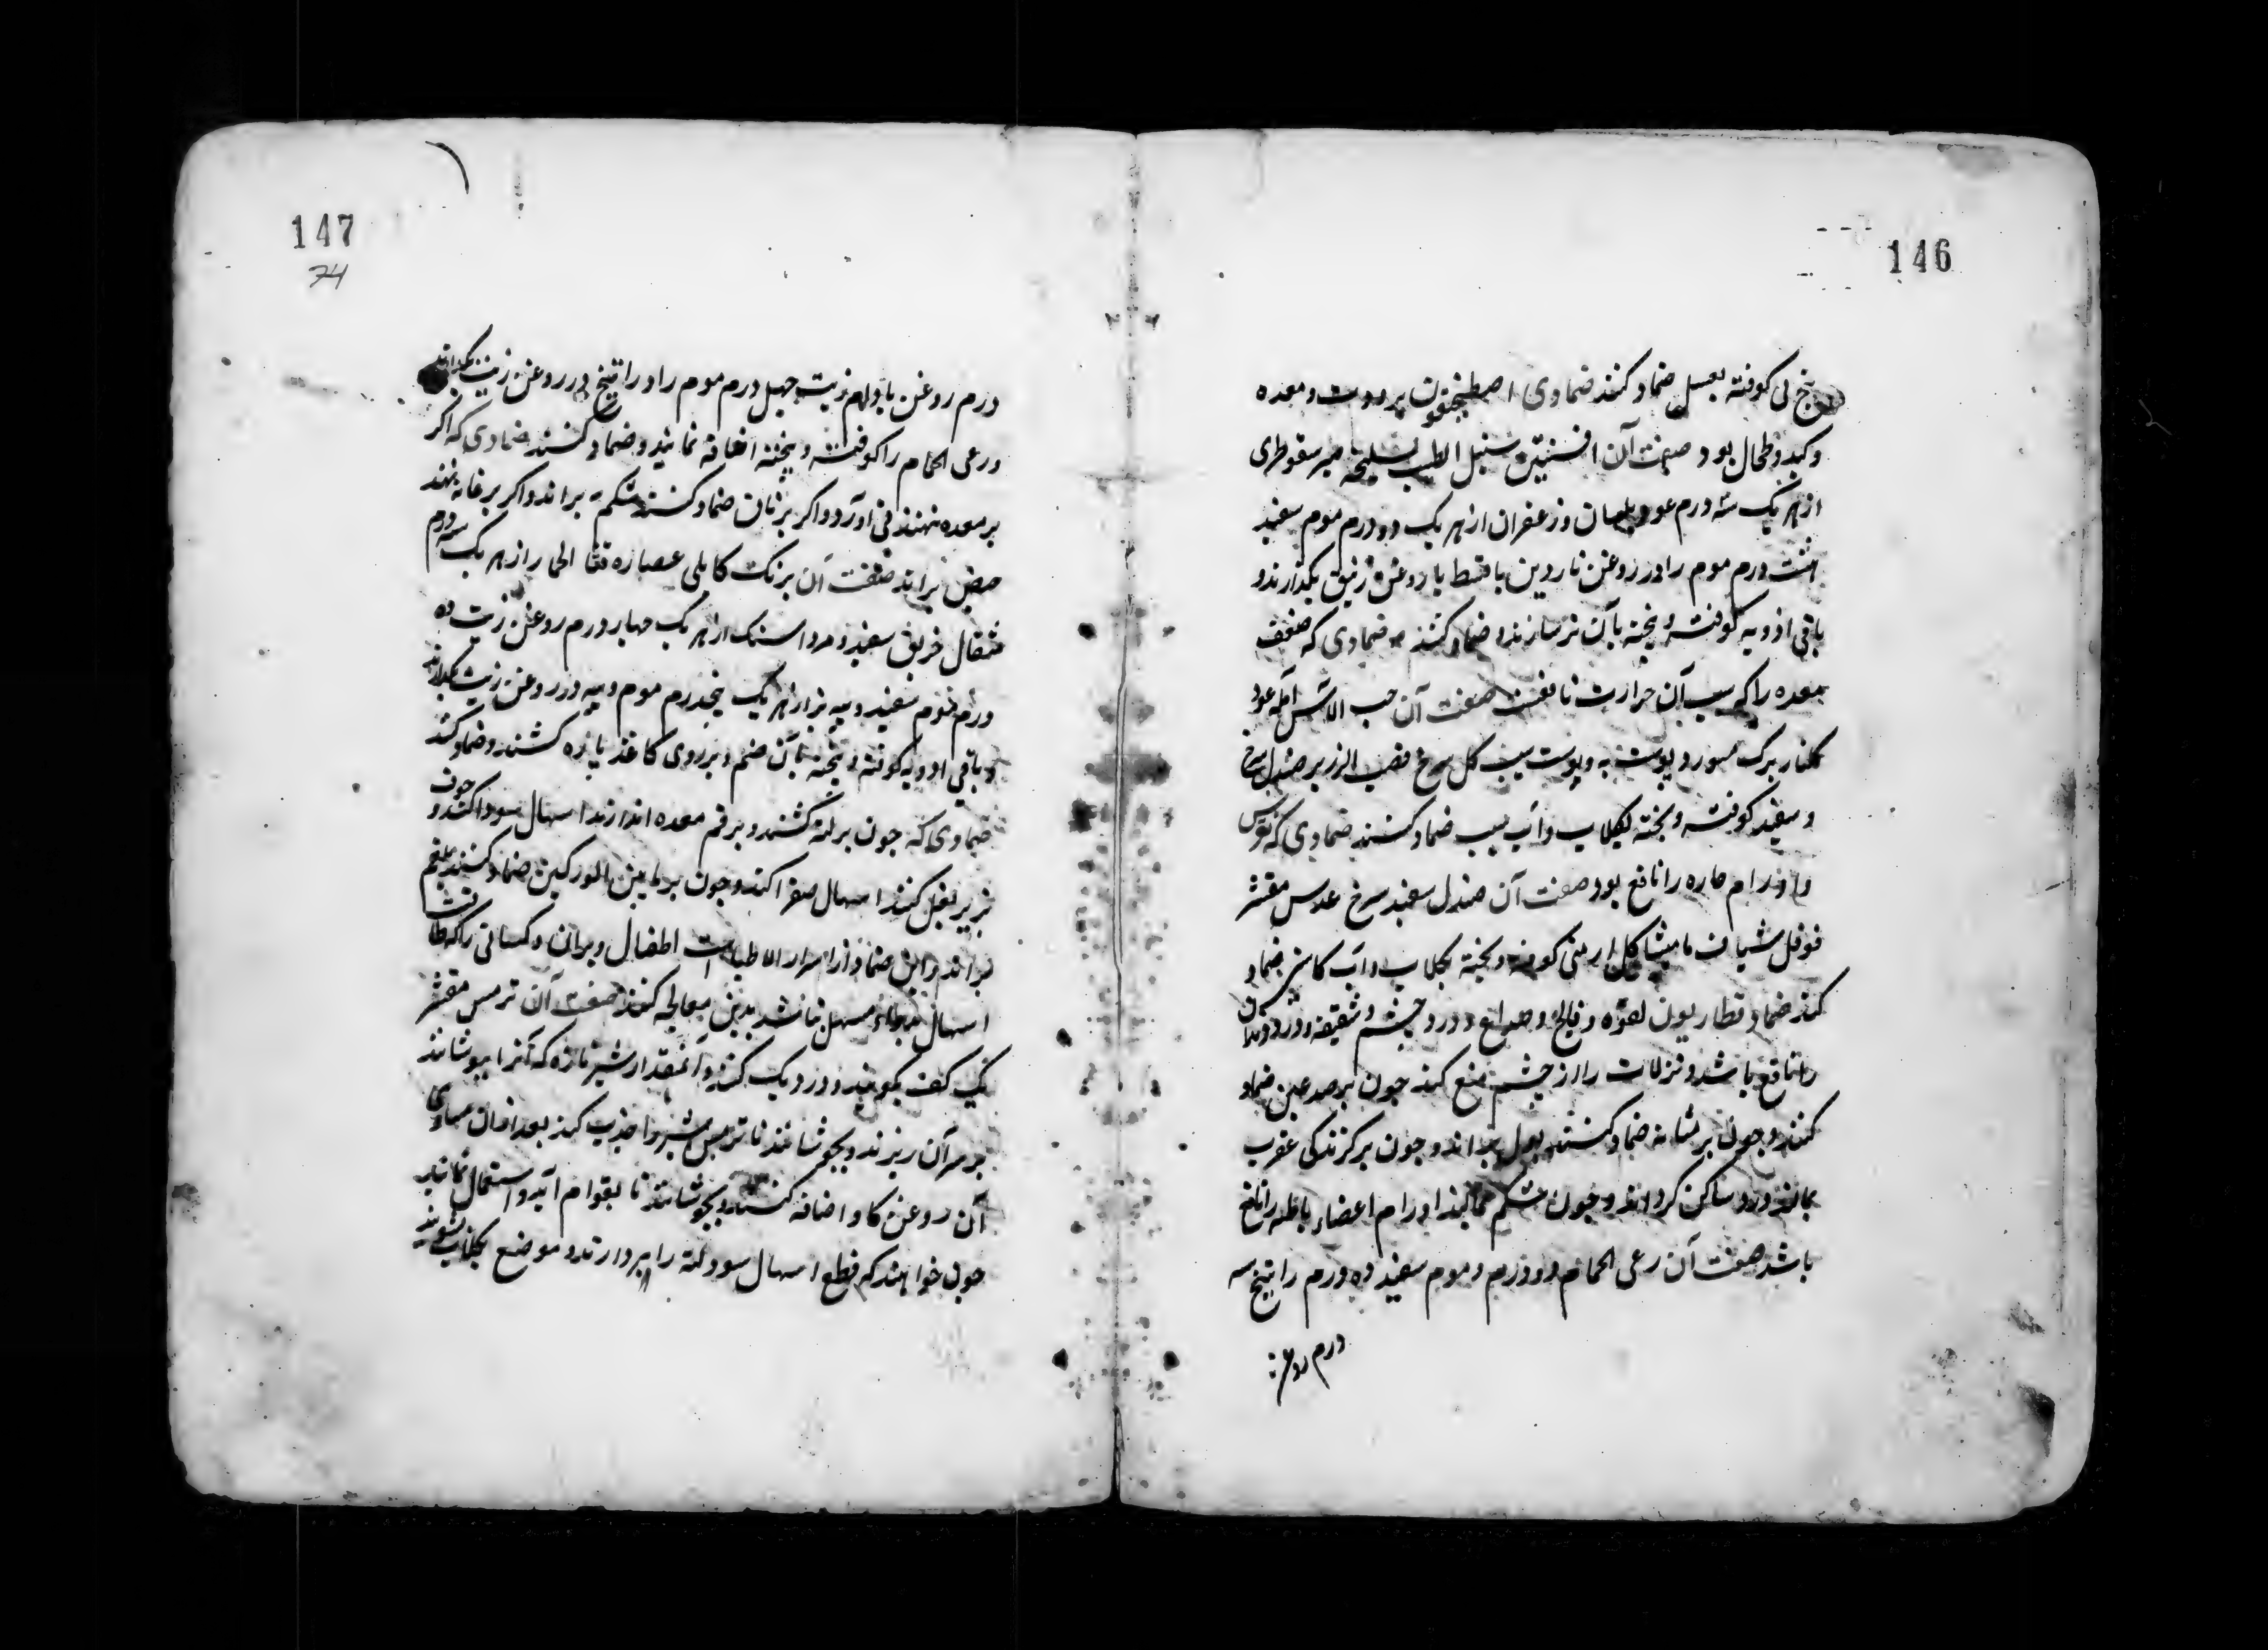 146
کوفته بعسل ضماد کنند ضمادی اصطخیقون برودت و معده
و کبد و طحال بود صفت آن افسنتین سنبل الطیب سلیخه صبر سقوطری
از هر یک سه درم عود بلسان و زعفران از هر یک دو درم موم سفید
هشت درم موم را در روغن ناردین یا قسط یا روغن زنبق بگدازند و
باقی ادویه کوفته و پخته بآن بر سازند و ضماد کنند ضمادی که ضعف
معده را که سبب آن حرارت نافعست صفت آن حب الآس آمله عود
گلنار برک مورد پوست به و پوست سیب کل سرخ قصب الزریر صندل سرخ
و سفید کوفته و پخته بکلاب و آب سیب ضماد کنند ضمادی که نقرس
و اورام حاره را نافع بود صفت آن صندل سفید سرخ عدس مقشر
فوفل شیاف مامیثا کل ارمنی کوفته و پخته بکلاب و آب کاسنی ضماد
کنند ضماد قطاریون لقوه و فالج و صداع و درد چشم و شقیقه و درد دندان
را نافع باشد و نزلات را از چشم منع کند چون بر صدغین ضماد
کنند و چون بر مثانه ضماد کنند بول براند و چون بر کزندکی عقرب
بمالند درد ساکن کرداند و چون بشکم بمالند اورام اعضاء باطنه را نافع
باشد صفت آن رعی الحمام دو درم و موم سفید ده درم راتینج سه
درم روغن
147
74
درم روغن بادام زیت چهل درم موم را و راتینج در روغن زیت بگدازند
و رعی الحمام را کوفته و پخته اضافه نمایند و ضماد کنند ضمادی که اکر
بر معده نهند قی آورد و اکر بر ناف ضماد کنند شکم براند و اکر بر عانه نهند
حیض براند صفت آن برنک کابلی عصاره قثا الحمار از هر یک سه درم
مثقال خربق سفید و مرداسنک از هر یک چهار درم روغن زیت ده
درم موم سفید و پیه بز از هر یک پنجدرم موم و پیه در روغن زیت بگدازند
و باقی ادویه کوفته و پخته بآن ضم و بر روی کاغذ پاره کشند و ضماد کنند
ضمادی که چون بر لته کشند و بر فم معده اندازند اسهال سودا کند و چون
بزیر بغل کنند اسهال صفرا کند و چون بر مابین الورکین ضماد کنند بلغم
براند و این ضماد از اسرار الاطباست اطفال و پیران و کسانی را که طاقت
اسهال بدواء مسهل نباشد بدین معالجه کنند صفت آن ترمس مقشر
یک کف بکوبند و در دیک کنند و آنمقدار شیر تازه که آنرا بپوشاند
بر سر آن ریزند و بجوشانند تا ترمس شیر را جذب کند بعد از آن مساوی
آن روغن کاو اضافه کنند و بجوشانند تا بقوام آید و استعمال نمایند
چون خواهند که قطع اسهال سود لته را بردارند و موضع بکلاب بشویند